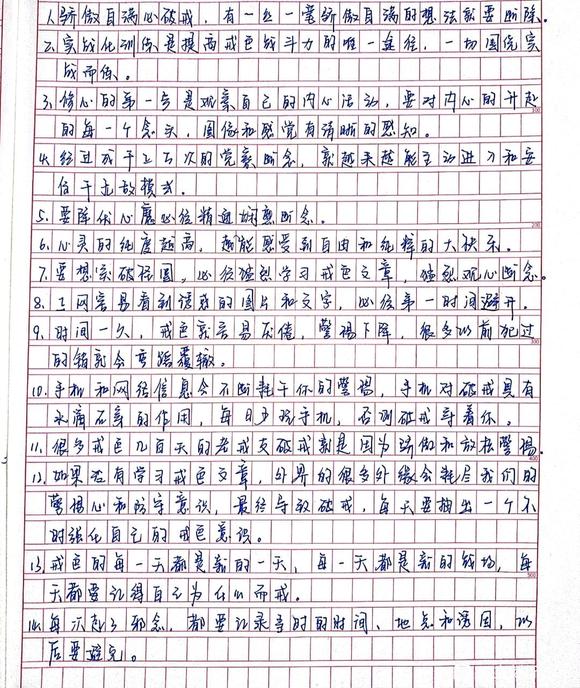 1.骄傲自满必破戒，有一丝一毫骄傲自满的想法就要断除。
2.实战化训练是提高戒色战斗力的唯一途径，一切围绕实
战而练。
3.修心的第一步是观察自己的内心活动，要对内心的升起
的每一个念头，图像和感觉有清晰的感知。
4.经过成千上万次的觉察断念，就越来越能主动进入和安
住于无敌模式。
5.要降伏心魔必须精通娴熟断念。
6.心灵的纯度越高，越能感受到自由和纯粹的大快乐。
7.要想突破怪圈，必须强烈学习戒色文章，强烈观心断念。
8.上网容易看到诱惑的图片和文字，必须第一时间避开。
9.时间一久，戒色就容易厌倦，警惕下降，很多以前犯过
的错就会重蹈覆辙。
10.手机和网络信息会不断耗干你的警惕，手机对破戒具有
水滴石穿的作用，每日少玩手机，否则破戒等着你。
11.很多戒色几百天的老戒友破戒就是因为骄傲和放松警惕。
12.如果没有学习戒色文章，外界的很多外缘会耗尽我们的
警惕心和防守意识，最终导致破戒，每天要抽出一个小
时强化自己的戒色意识。
13.戒色的每一天都是新的一天，每一天都是新的战场，每
天都要记得自己为什么而戒。
14.每次起了邪念，都要记录当时的时间、地点和诱因，以
后要避免。